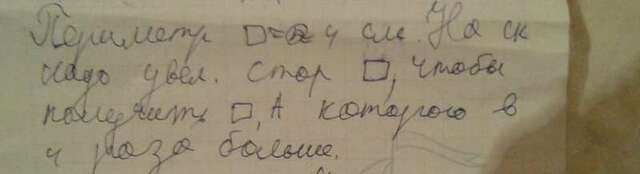 Периметр □= 4 см. На ск
надо увел. стор □, чтобы
получить □, А которого в
4 раза больше.